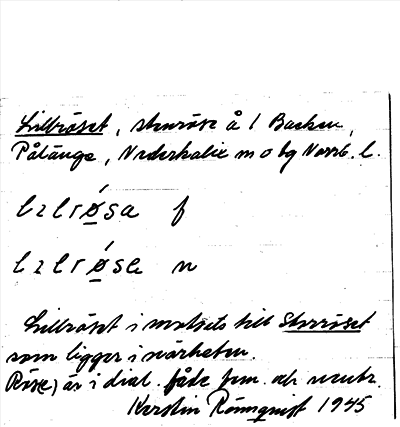 Lillröset, stenröse å 1 Backen,
Pålänge, Nederkalix m o bg Norrb. l.
lılrǿsa f
lılrǿse n
Lillröset i motsats till Storröset
som ligger i närheten.
Röse) är i dial. både fem. och neutr.
Kerstin Rönnqvist 1945